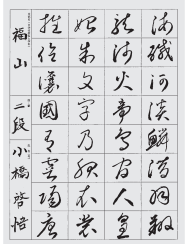 海鹹河淡鱗潛羽翔
龍師火帝鳥官人皇
始制文字乃服衣裳
推位讓國有虞陶唐
福山 二段 小橋啓悟